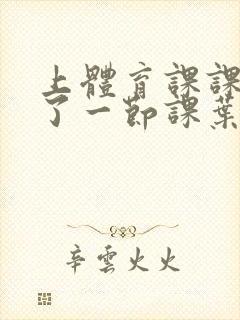 上體育課課
了一節課葉
辛雲火火